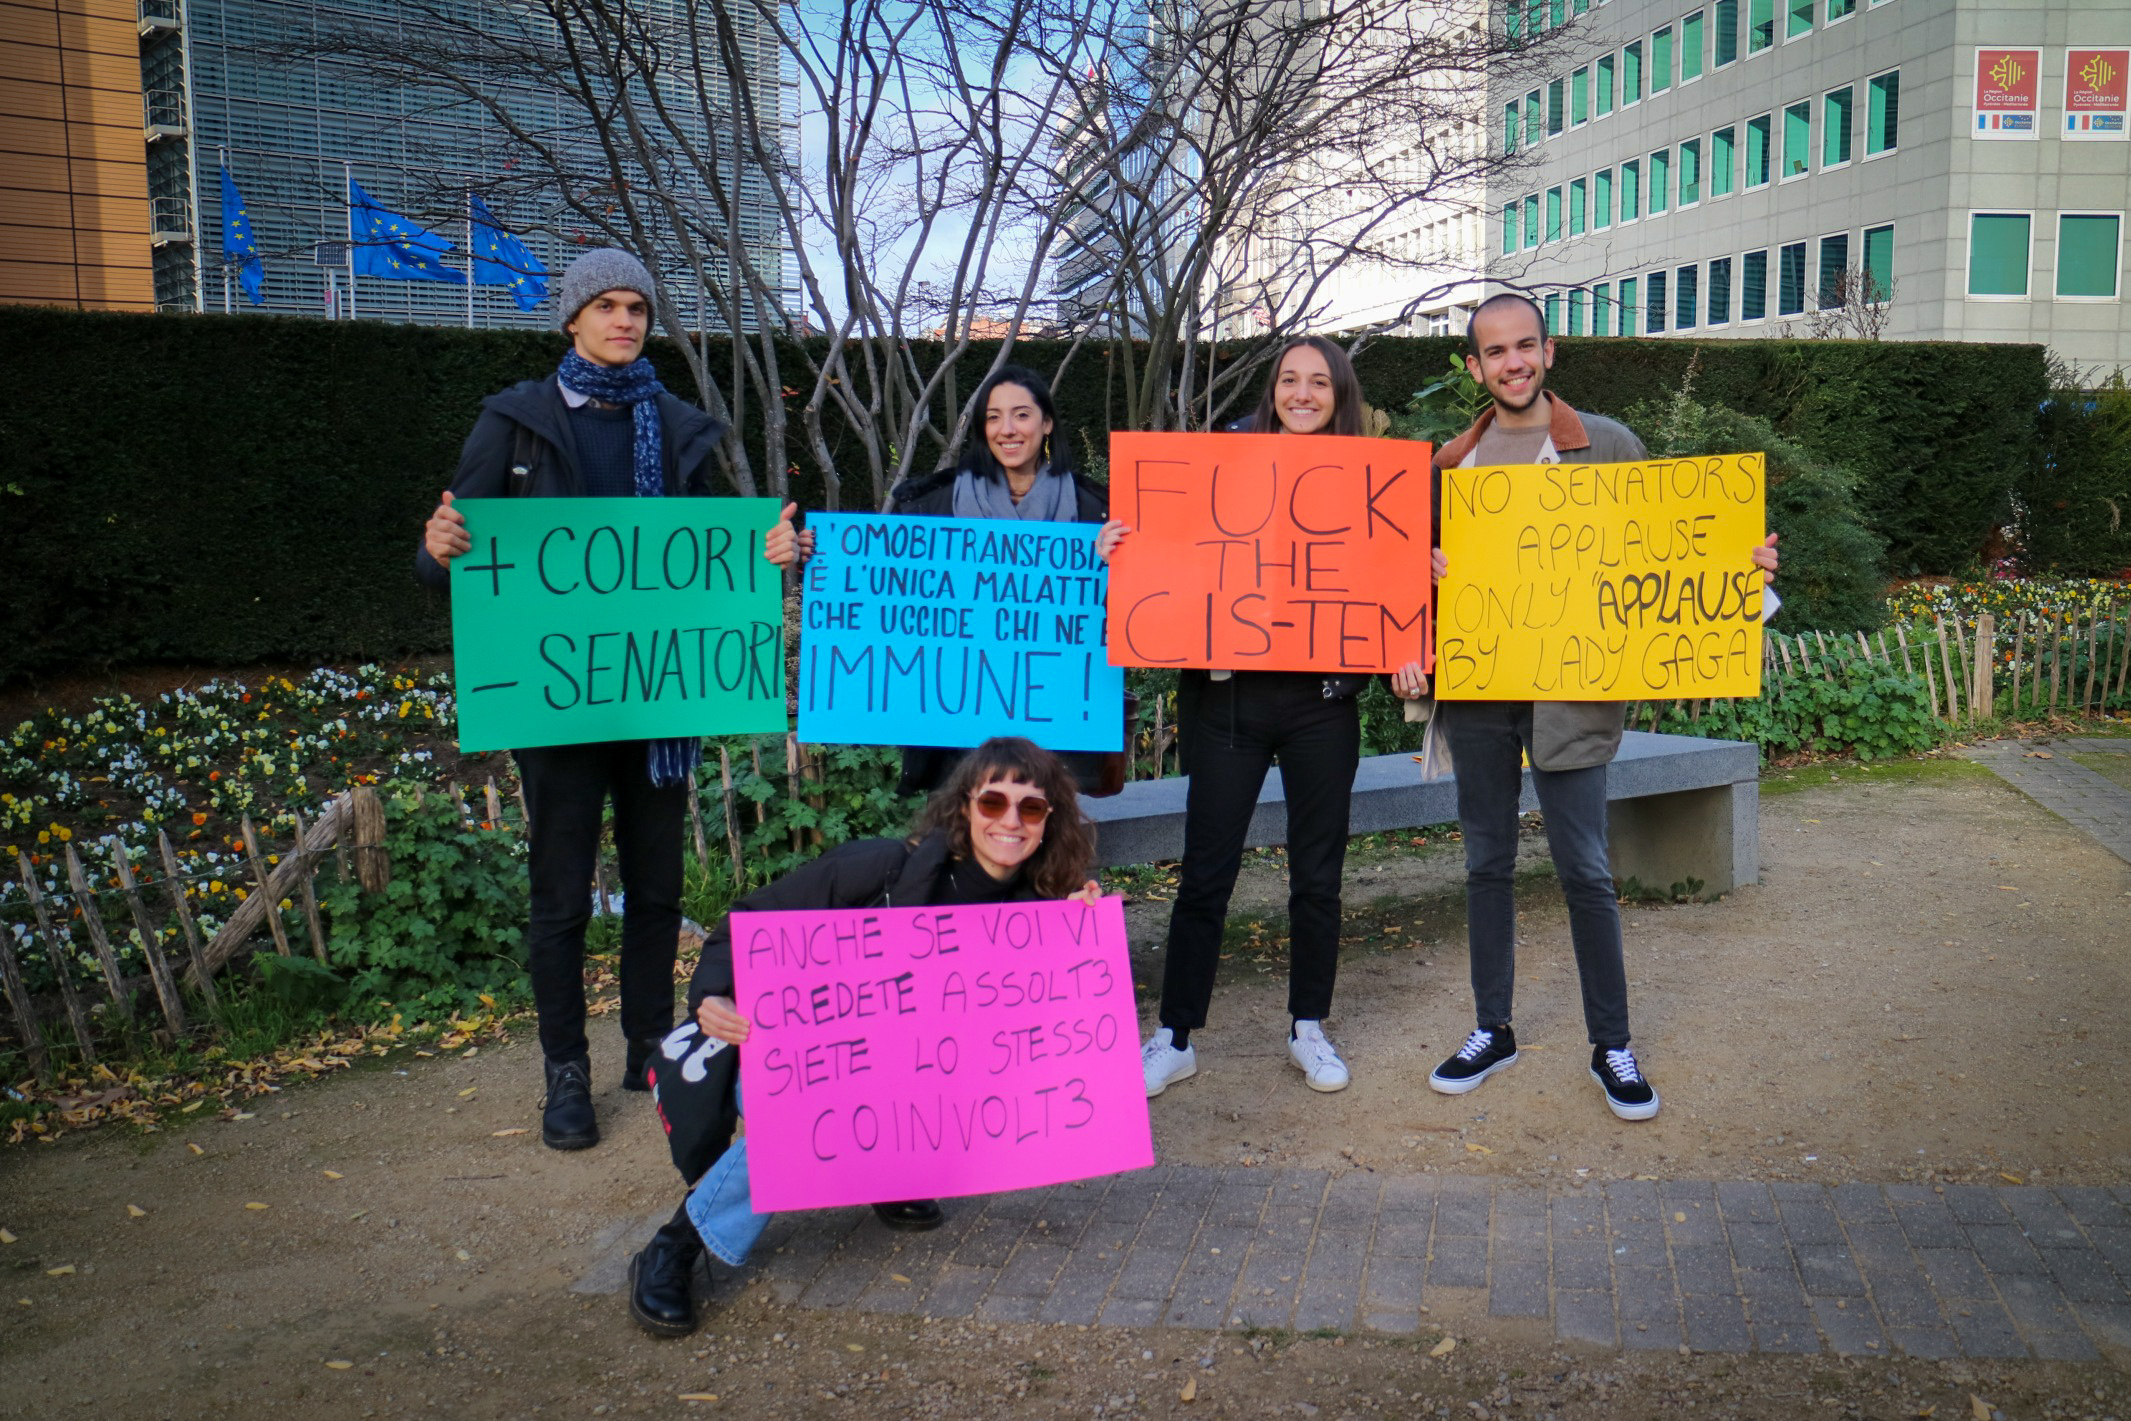 + COLORI
- SENATORI
L'OMOBITRANSFOBIA
È L'UNICA MALATTIA
CHE UCCIDE CHI NE È
IMMUNE!
FUCK
THE
CIS-TEM
NO SENATORS'
APPLAUSE
ONLY "APPLAUSE
BY LADY GAGA
ANCHE SE VOI VI
CREDETE ASSOLT3
SIETE LO STESSO
COINVOLT3
La Région
Occitanie
Pyrénées - Méditerranée
La Région
Occitanie
Pyrénées - Méditerranée